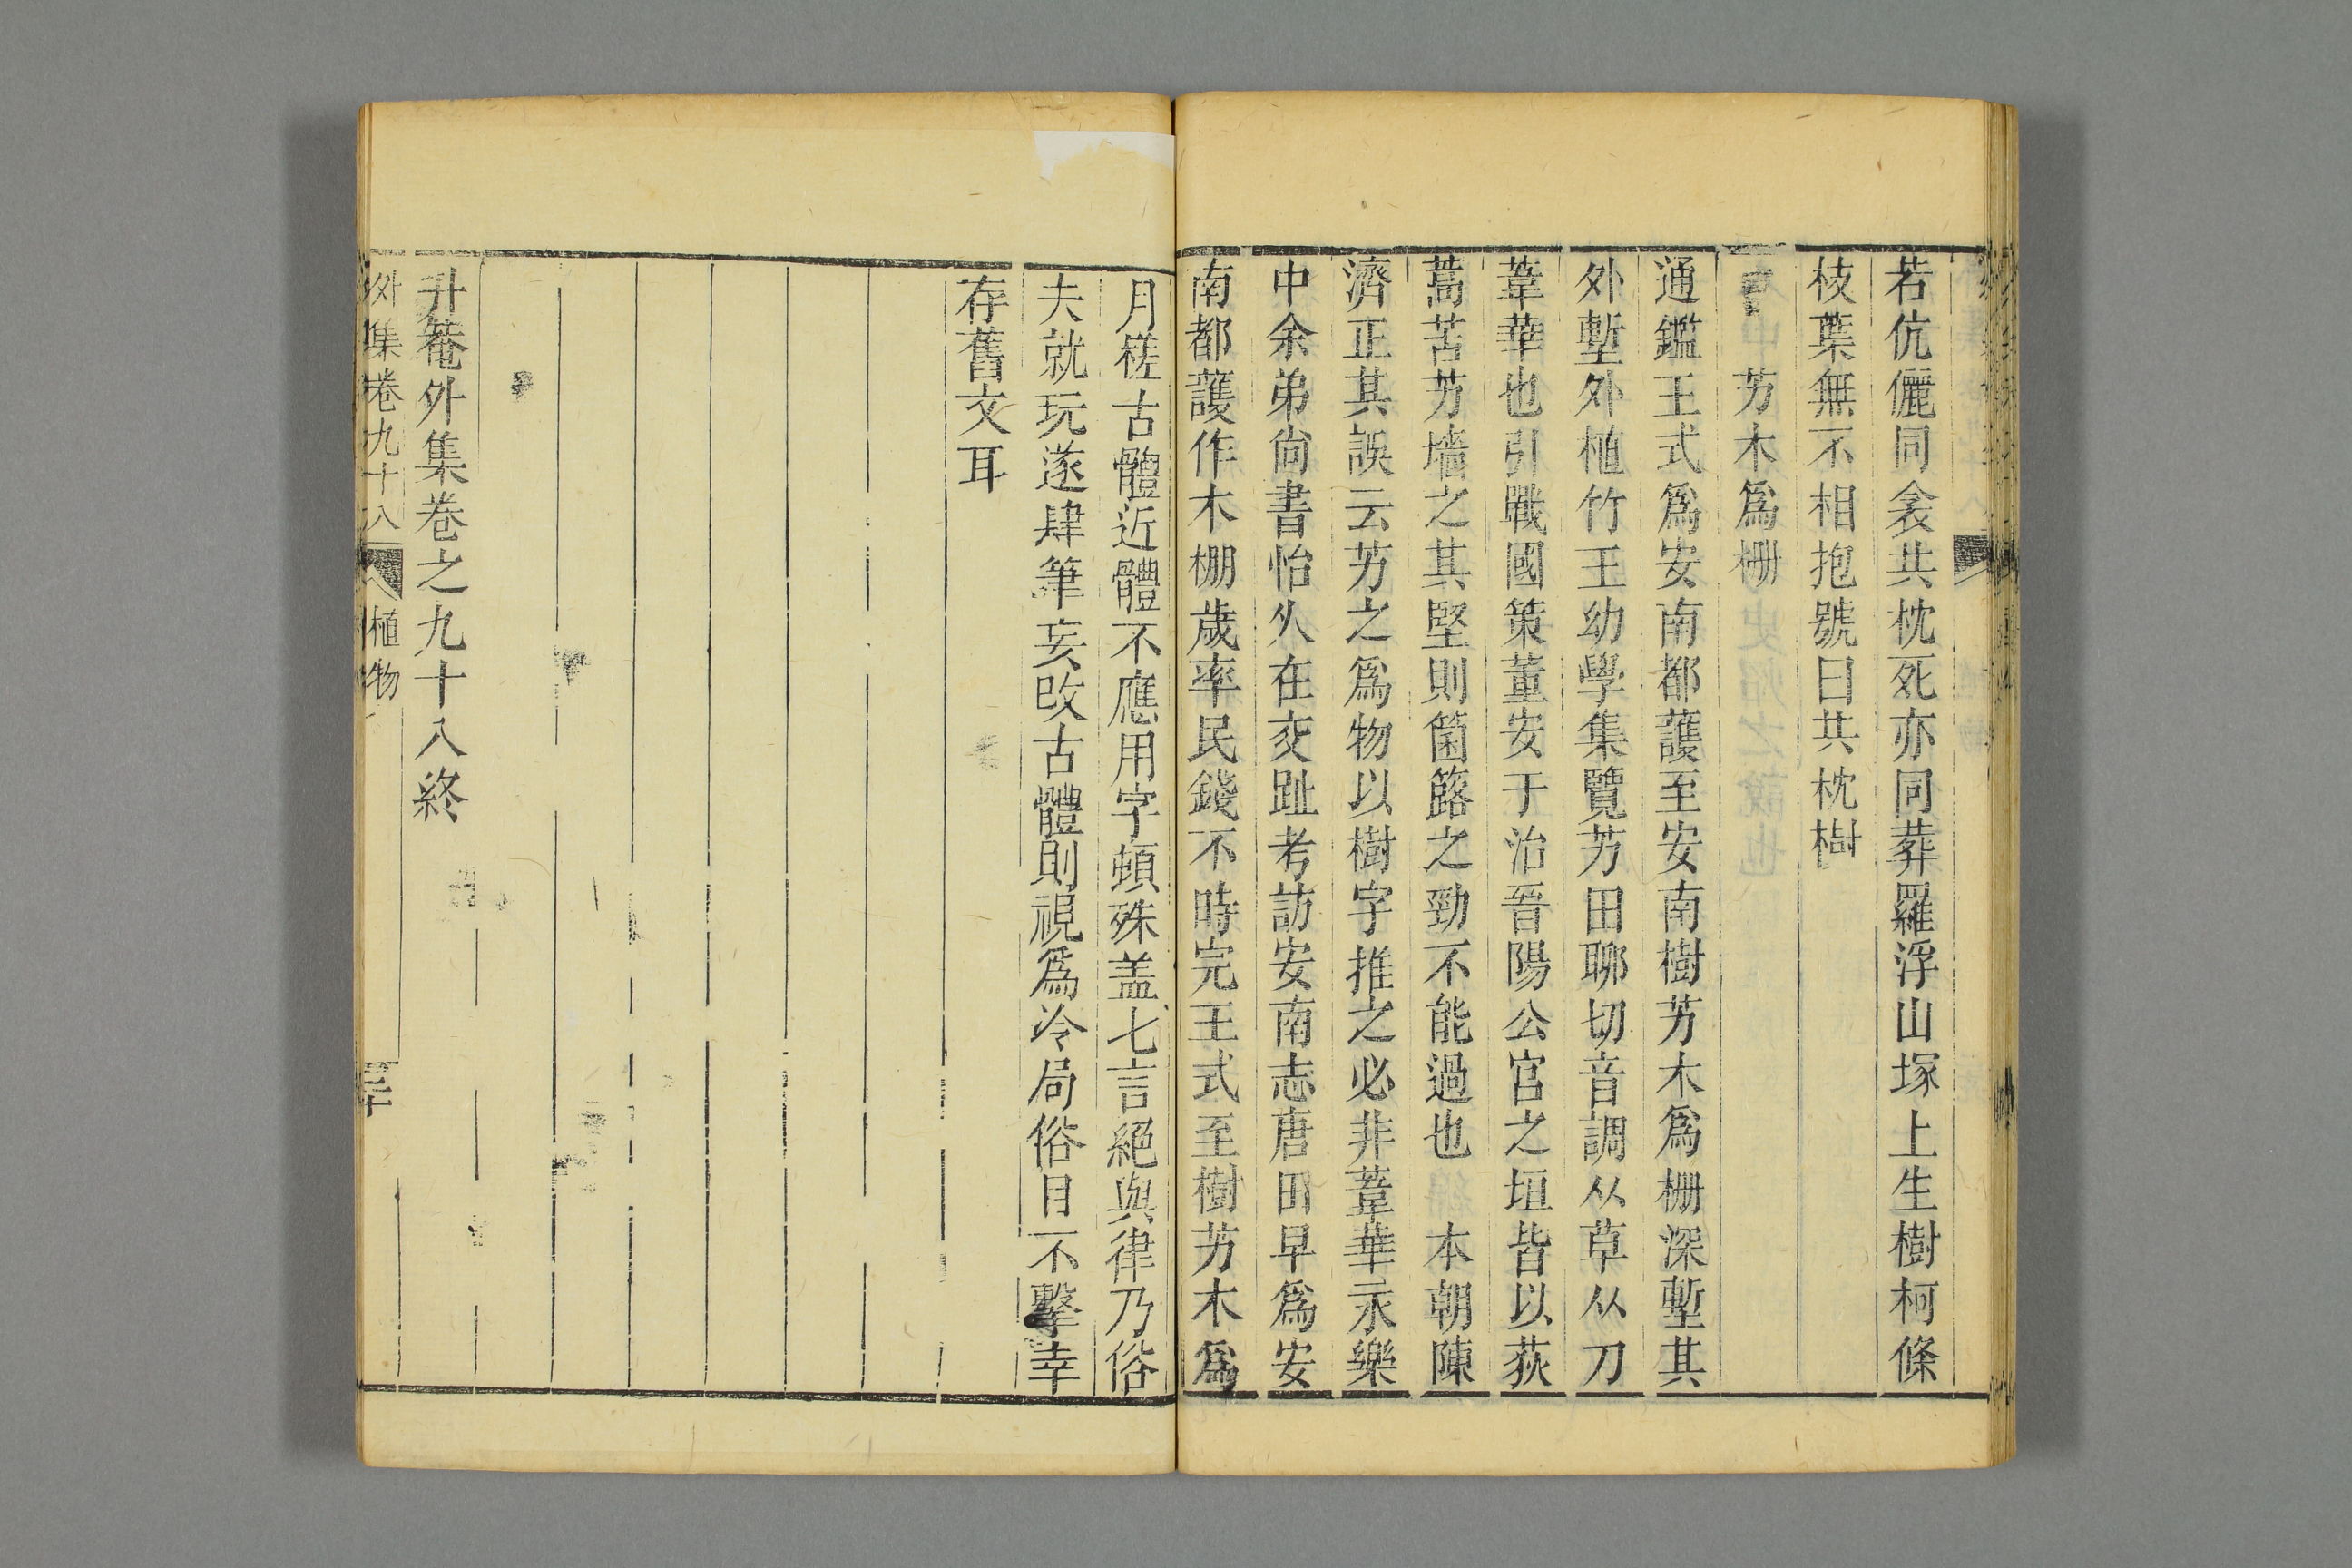 若伉儷同衾共枕死亦同葬羅浮山塚上生樹柯條
枝葉無不相抱號曰共枕樹
芀木爲栅
通鑑王式爲安南都護至安南樹芀木爲栅深塹其
外塹外植竹王幼學集覽芀田聊切音調从草从刀
葦華也引戰國策董安于治晉陽公宫之垣皆以荻
蒿苫芀墻之其堅則箘簬之勁不能過也 本朝陳
濟正其誤云芀之爲物以樹字推之必非葦華永樂
中余弟尚書怡久在交趾考訪安南志唐田早爲安
南都護作木棚歲率民錢不時完王式至樹芀木爲
月槎古體近體不應用字頓殊盖七言絕與律乃俗
夫就玩遂肆筆妄改古體則視爲冷局俗目不擊幸
存舊文耳
升菴外集卷之九十八終
外集卷九十八 植物 三十